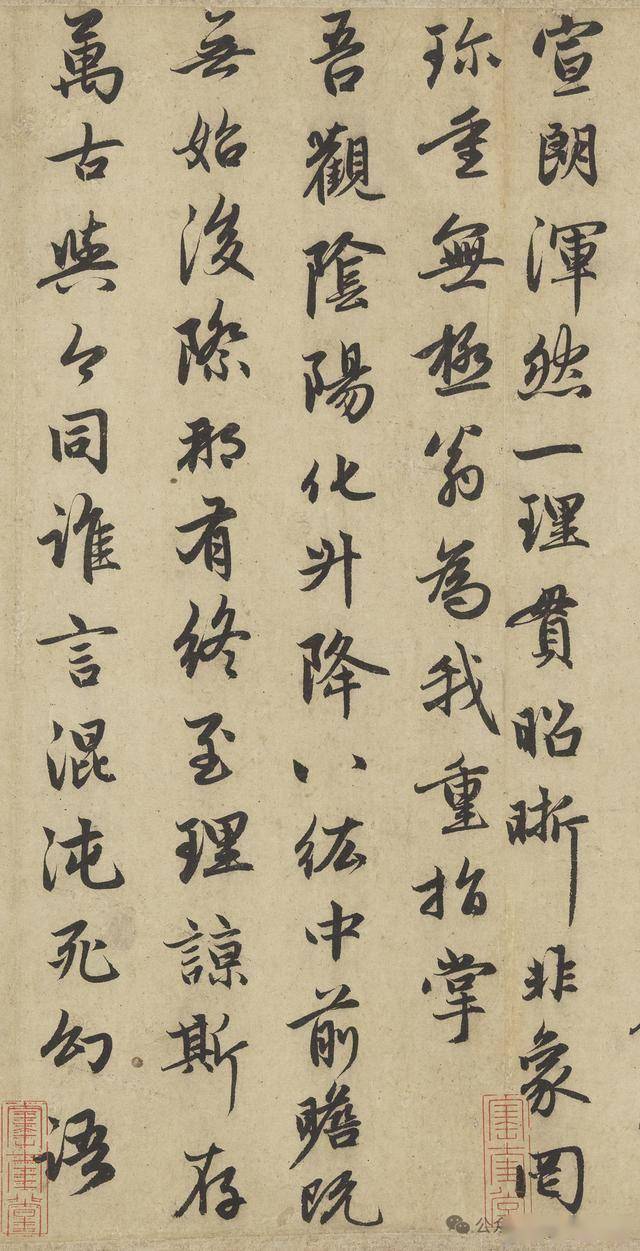 宣朗渾然一理貫昭晰非象罔
珎重無極翁為我重指掌
吾觀陰陽化升降八紘中前瞻既
無始後際那有終至理諒斯存
萬古與今同誰言混沌死幻語
公众